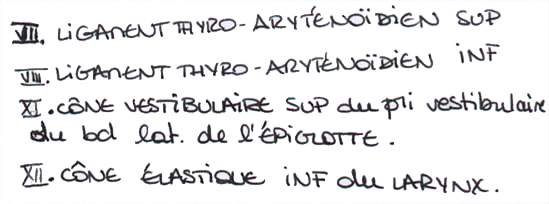 VII. LIGAMENT THYRO-ARYTÉNOÏDIEN SUP
VIII. LIGAMENT THYRO-ARYTÉNOÏDIEN INF
XI. CÔNE VESTIBULAIRE SUP du pli vestibulaire
du bd lat. de l'ÉPIGLOTTE.
XII. CÔNE ÉLASTIQUE INF du LARYNX.